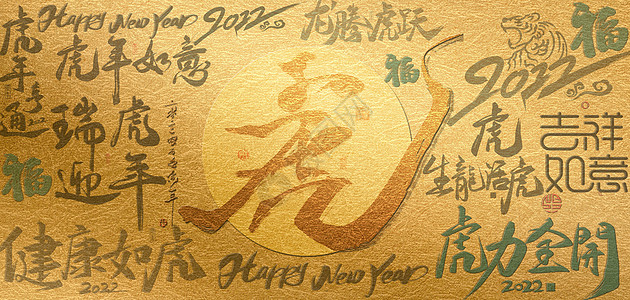 Happy New Year 2022
龙腾虎跃
福
虎年亨通
虎年如意
福
2022
虎
瑞虎迎年
虎
生龍活虎
吉祥如意
福
健康如虎
2022
Happy New Year
虎力全開
2022